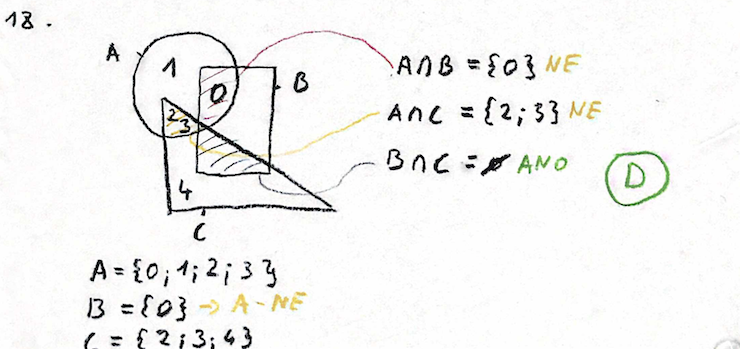 18.
A
1
0
B
2
3
4
C
A∩B = {0} NE
A∩C = {2; 3} NE
B∩C = ∅ ANO
D
A = {0; 1; 2; 3}
B = {0} → A - NE
C = {2; 3; 4}